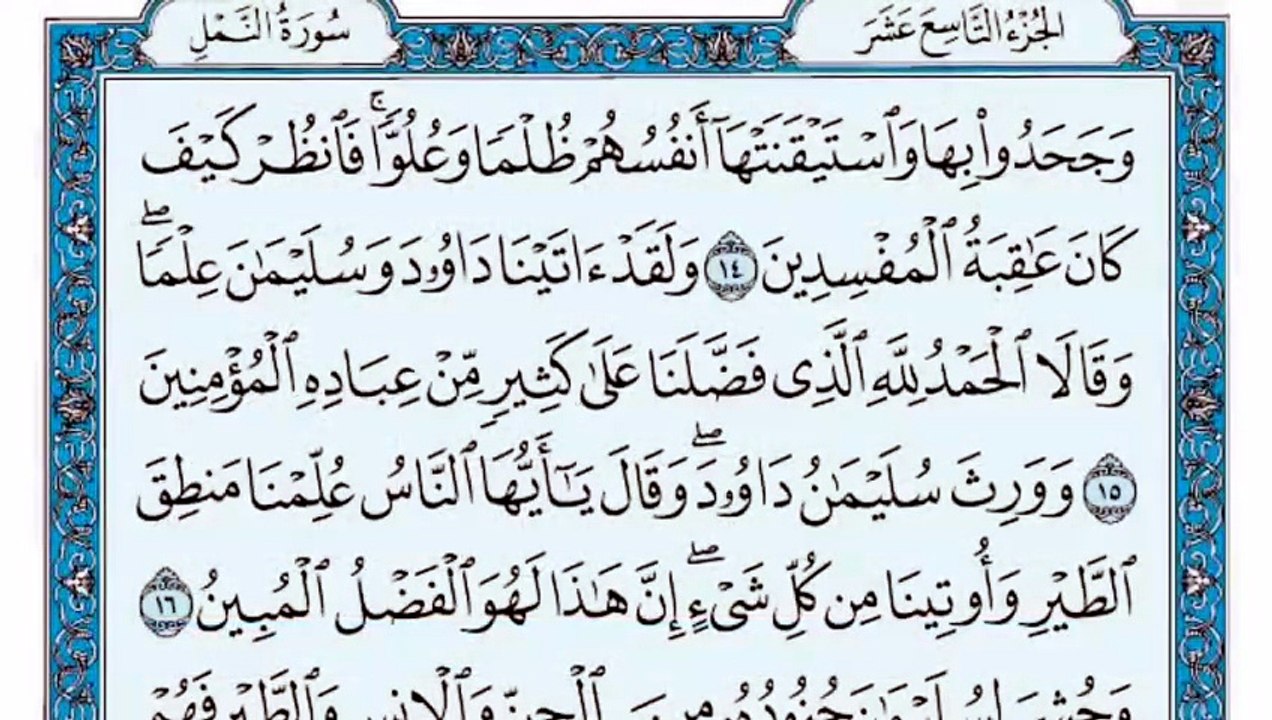 الجُزْءُ التَّاسِعَ عَشَرَ
سُورَةُ النَّمْلِ
وَجَحَدُوا۟ بِهَا وَٱسْتَيْقَنَتْهَآ أَنفُسُهُمْ ظُلْمًا وَعُلُوًّا ۚ فَٱنظُرْ كَيْفَ
كَانَ عَٰقِبَةُ ٱلْمُفْسِدِينَ ١٤ وَلَقَدْ ءَاتَيْنَا دَاوُۥدَ وَسُلَيْمَٰنَ عِلْمًا ۖ
وَقَالَا ٱلْحَمْدُ لِلَّهِ ٱلَّذِى فَضَّلَنَا عَلَىٰ كَثِيرٍ مِّنْ عِبَادِهِ ٱلْمُؤْمِنِينَ
١٥ وَوَرِثَ سُلَيْمَٰنُ دَاوُۥدَ ۖ وَقَالَ يَٰٓأَيُّهَا ٱلنَّاسُ عُلِّمْنَا مَنطِقَ
ٱلطَّيْرِ وَأُوتِينَا مِن كُلِّ شَىْءٍ ۖ إِنَّ هَٰذَا لَهُوَ ٱلْفَضْلُ ٱلْمُبِينُ ١٦
وَحُشِرَ لِسُلَيْمَٰنَ جُنُودُهُۥ مِنَ ٱلْجِنِّ وَٱلْإِنسِ وَٱلطَّيْرِ فَهُمْ